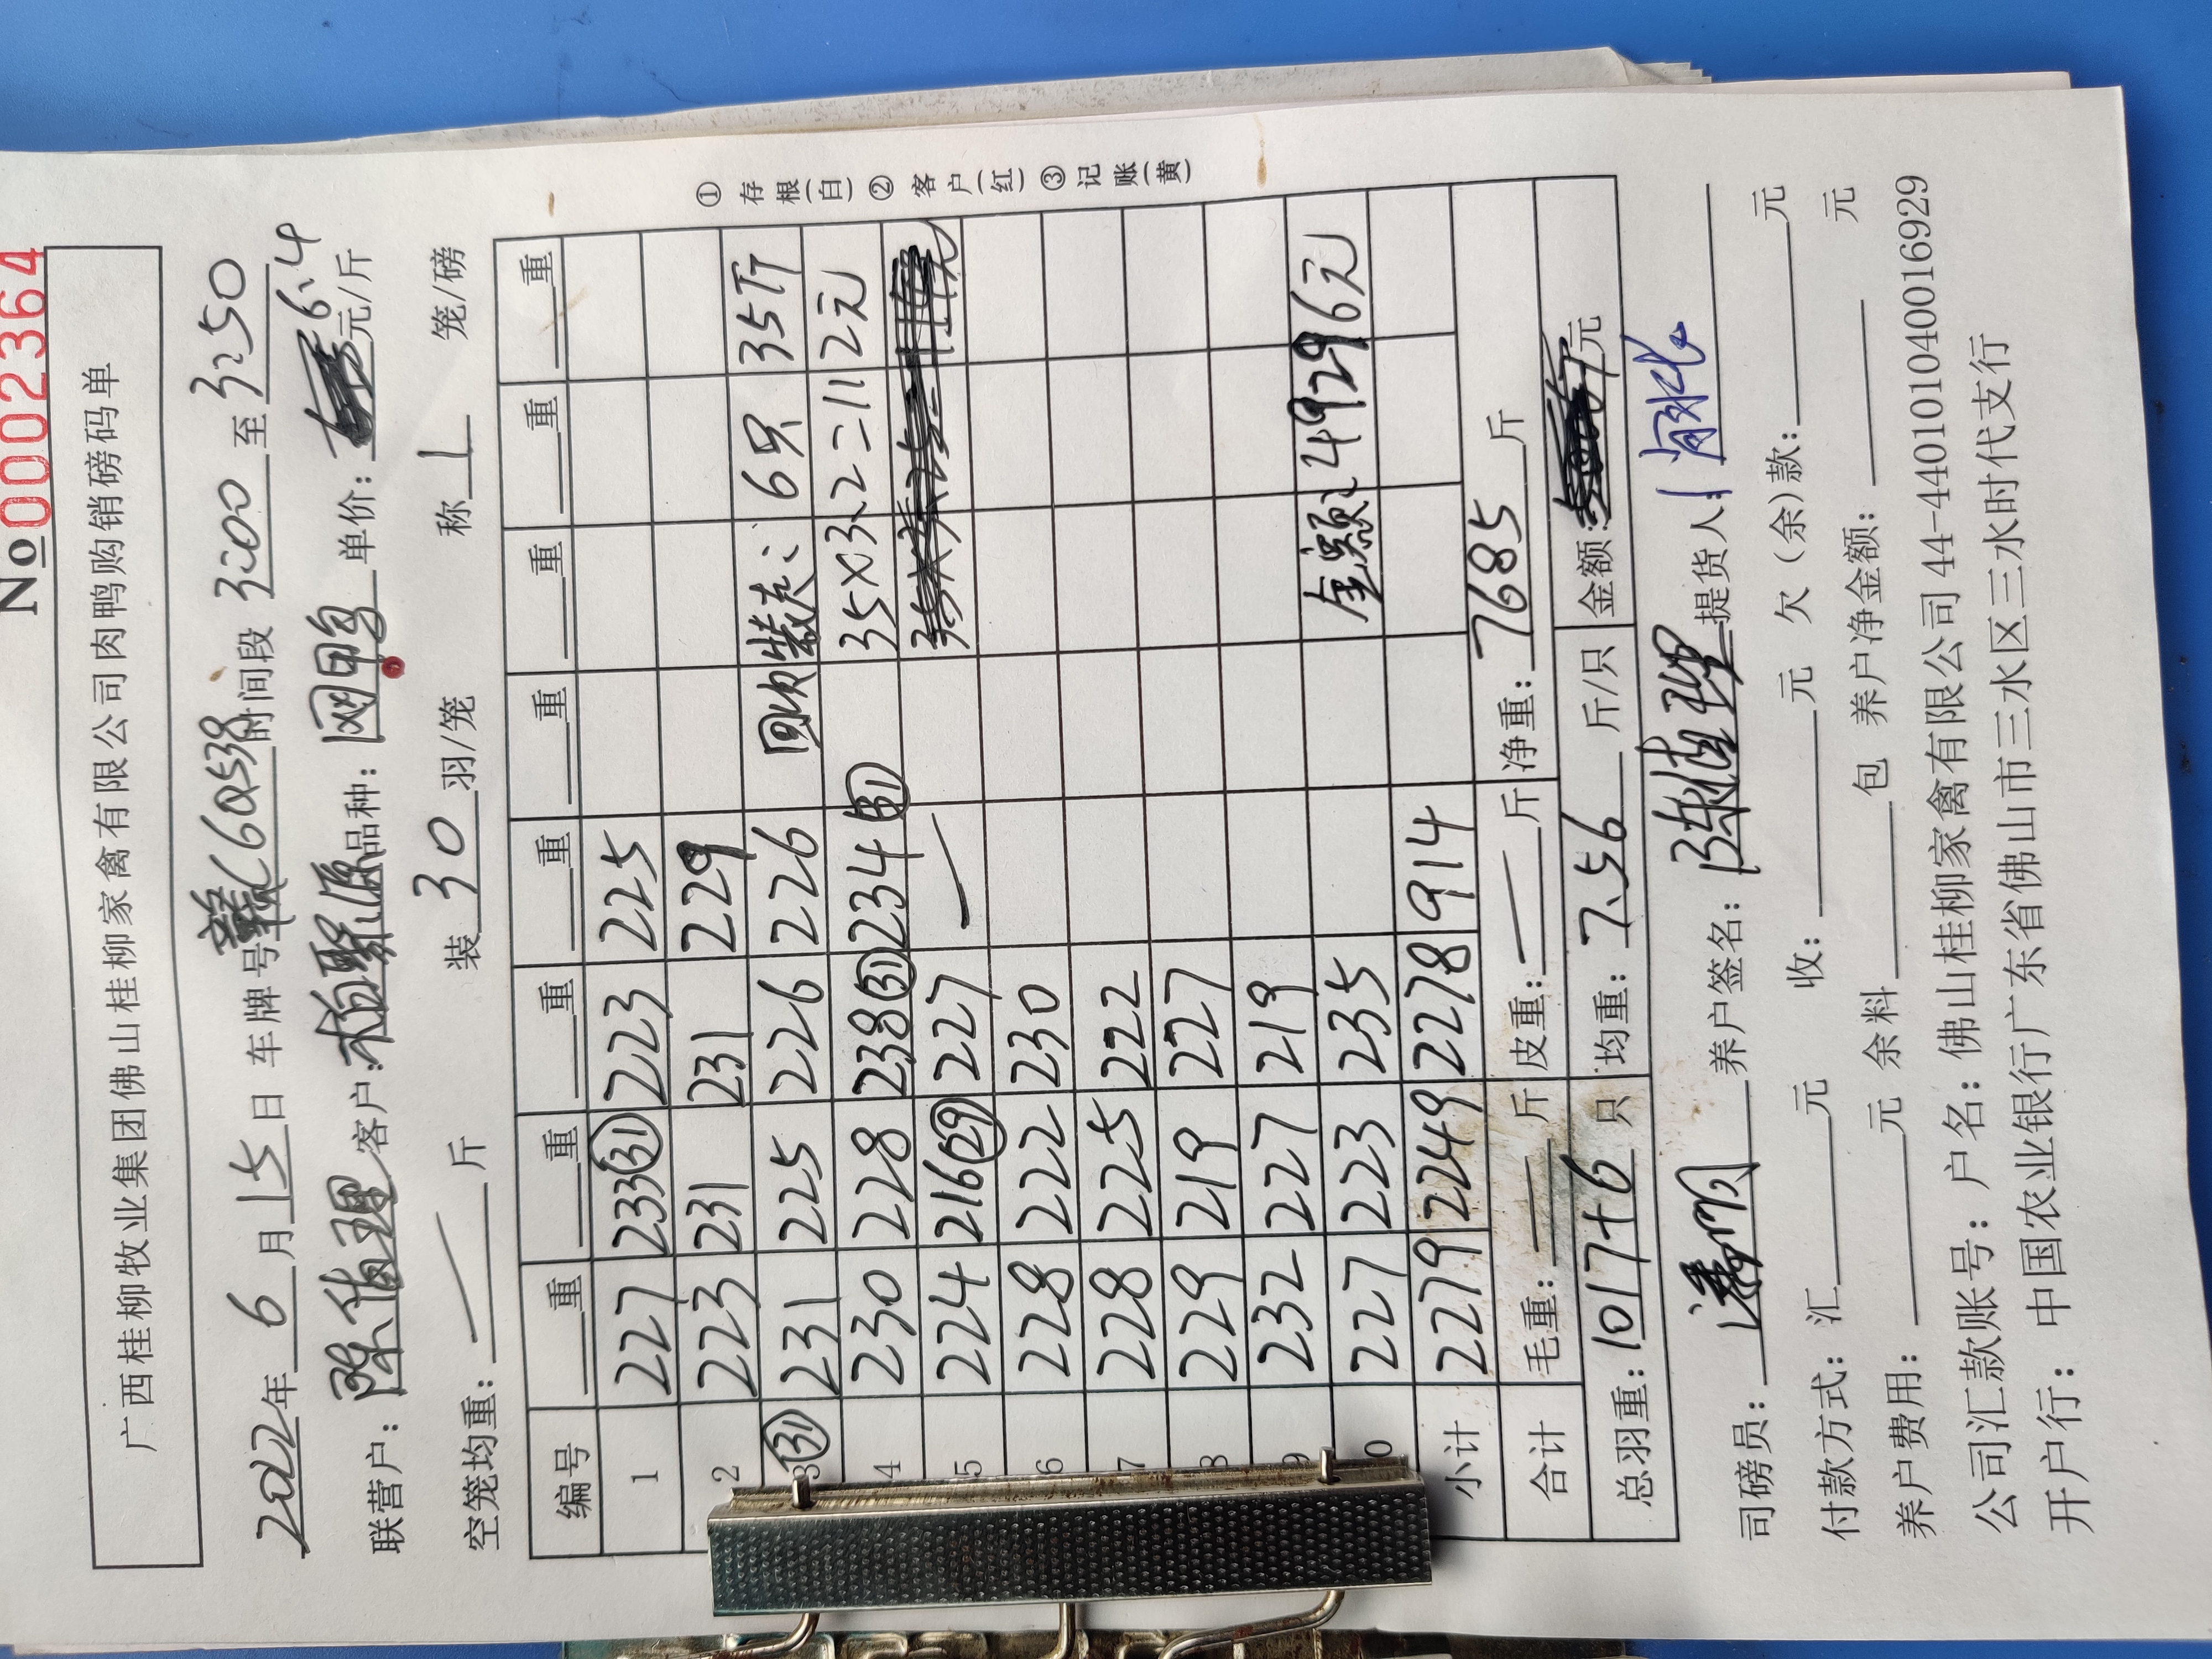 №0002364
广西桂柳牧业集团佛山桂柳家禽有限公司肉鸭购销磅码单
2022年 6 月 15 日 车牌号 赣C6Q538 时间段 3:00 至 3:50
联营户: 陈值理 客户: 柏聚源 品种: 网甲鸟 单价: 6.4 元/斤
空笼均重: 斤 装 30 羽/笼 称 1 笼/磅
编号 重 重 重 重 重 重 重 重
1 227 233㉛ 223 225
2 223 231 231 229
3㉛ 231 225 226 226 回收装走: 6只 35斤
4 230 228 238㉛ 234㉛ 35X3.2=112元
5 224 216㉙ 227 —
6 228 222 230
7 228 225 222
8 229 219 227
9 232 227 219 金额: 49296元
10 227 223 235
小计 2279 2249 2278 914
合计 毛重: — 斤 皮重: — 斤 净重: 7685 斤
总羽重: 1017+6 只 均重: 7.56 斤/只 金额: 元
司磅员: 养户签名: 陈值理 提货人:
付款方式: 汇 元 收: 元 欠(余)款: 元
养户费用: 元 余料 包 养户净金额: 元
公司汇款账号: 户名: 佛山桂柳家禽有限公司 44-440101040016929
开户行: 中国农业银行广东省佛山市三水区三水时代支行
①存根(白) ②客户(红) ③记账(黄)